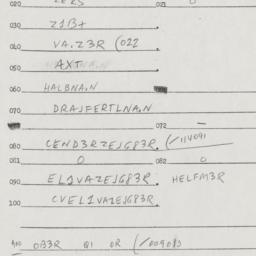 020 ZERS 021 0
030 Z1B+
040 VA.Z3R (022
050 AXT
060 HALBNA.N
070 DRAJFERTLNA.N
072 —
080 CEND3RZEJG83R. (/114091
081 0 082 0
090 EL1VAZEJG83R. HELFM3R
100 CVEL1VAZEJG83R.
A10 OB3R Q1 OR (/009080